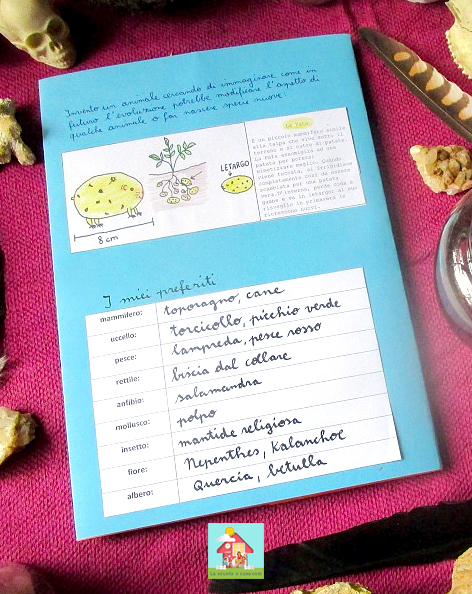 Invento un animale cercando di immaginare come in
futuro l'evoluzione potrebbe modificare l'aspetto di
qualche animale o far nascere specie nuove:
La Pata
È un piccolo mammifero simile
alla talpa che vive sotto il
terreno e si nutre di patate.
patata per potersi
mimetizzare meglio. Quando
viene toccata, si irrigidisce
completamente così da essere
scambiata per una patata
vera. D'inverno, perde coda e
zampe e va in letargo: al suo
risveglio in primavera le
ricrescono nuovi.
LETARGO
8 cm
I miei preferiti
mammifero: toporagno, cane
uccello: torcicollo, picchio verde
pesce: lampreda, pesce rosso
rettile: biscia dal collare
anfibio: salamandra
mollusco: polpo
insetto: mantide religiosa
fiore: Nepenthes, Kalanchoe
albero: Quercia, betulla